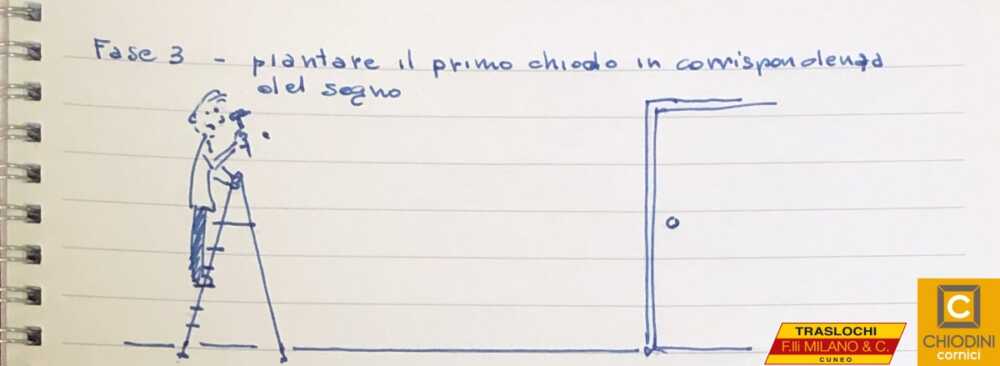 Fase 3 - piantare il primo chiodo in corrispondenza
del segno
TRASLOCHI
F.lli MILANO & C.
CUNEO
C
CHIODINI
cornici